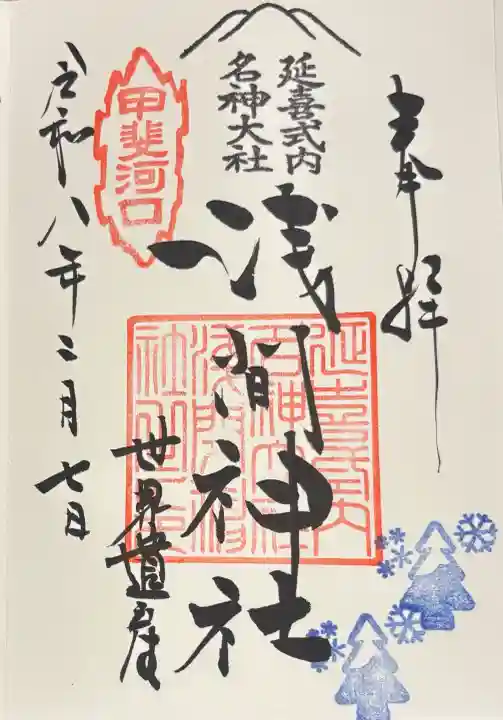 奉拝
延喜式内
名神大社
浅間神社
甲斐河口
世界遺産
令和八年二月七日
延喜式内
名神大社
浅間神社